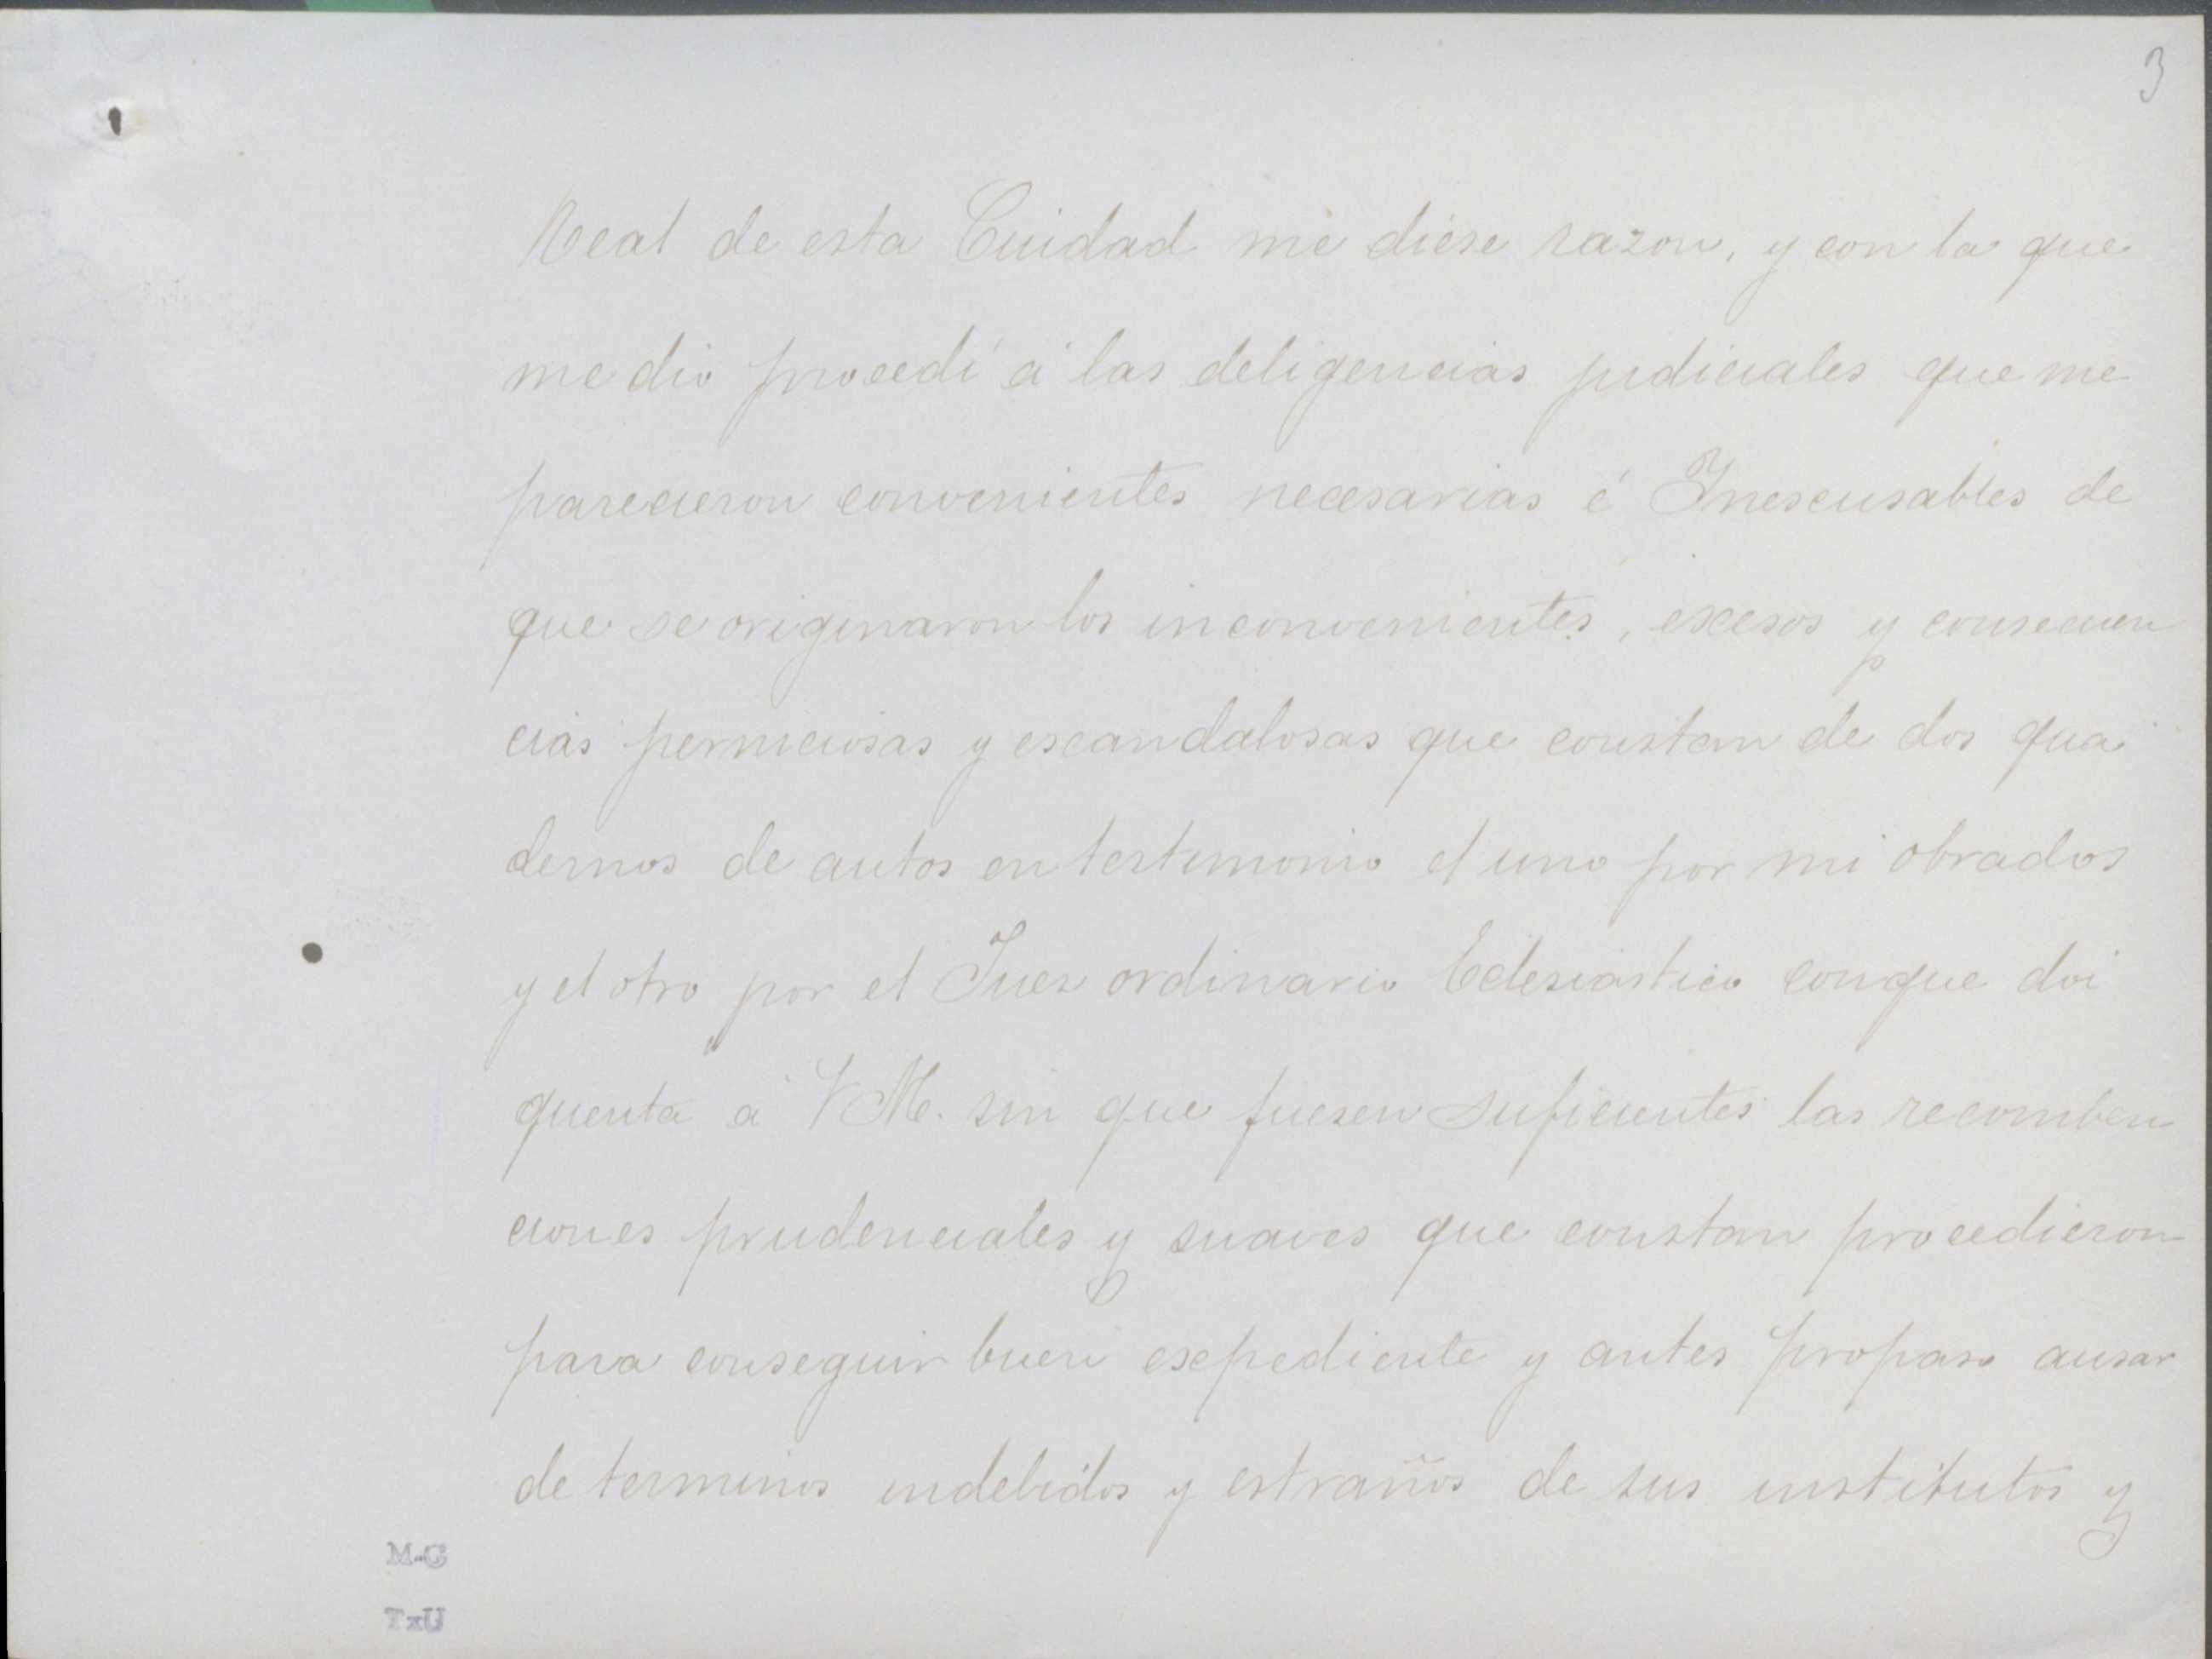 3
Real de esta Cuidad me diese razon, y con la que
me dio procedi á las deligencias judiciales que me
parecieron convenientes necesarias é Inescusables de
que se originaron los inconvenientes, excesos y consecuen
cias perniciosas y escandalosas que constan de dos qua
dernos de autos en testimonio el uno por mi obrados
y el otro por el Juez ordinario Eclesiastico conque doi
quenta á V M. sin que fuesen suficientes las recomben
ciones prudenciales y suaves que constan procedieron
para conseguir buen expediente y antes propaso ausar
de terminos indebidos y estraños de sus institutos y
M-G
TxU